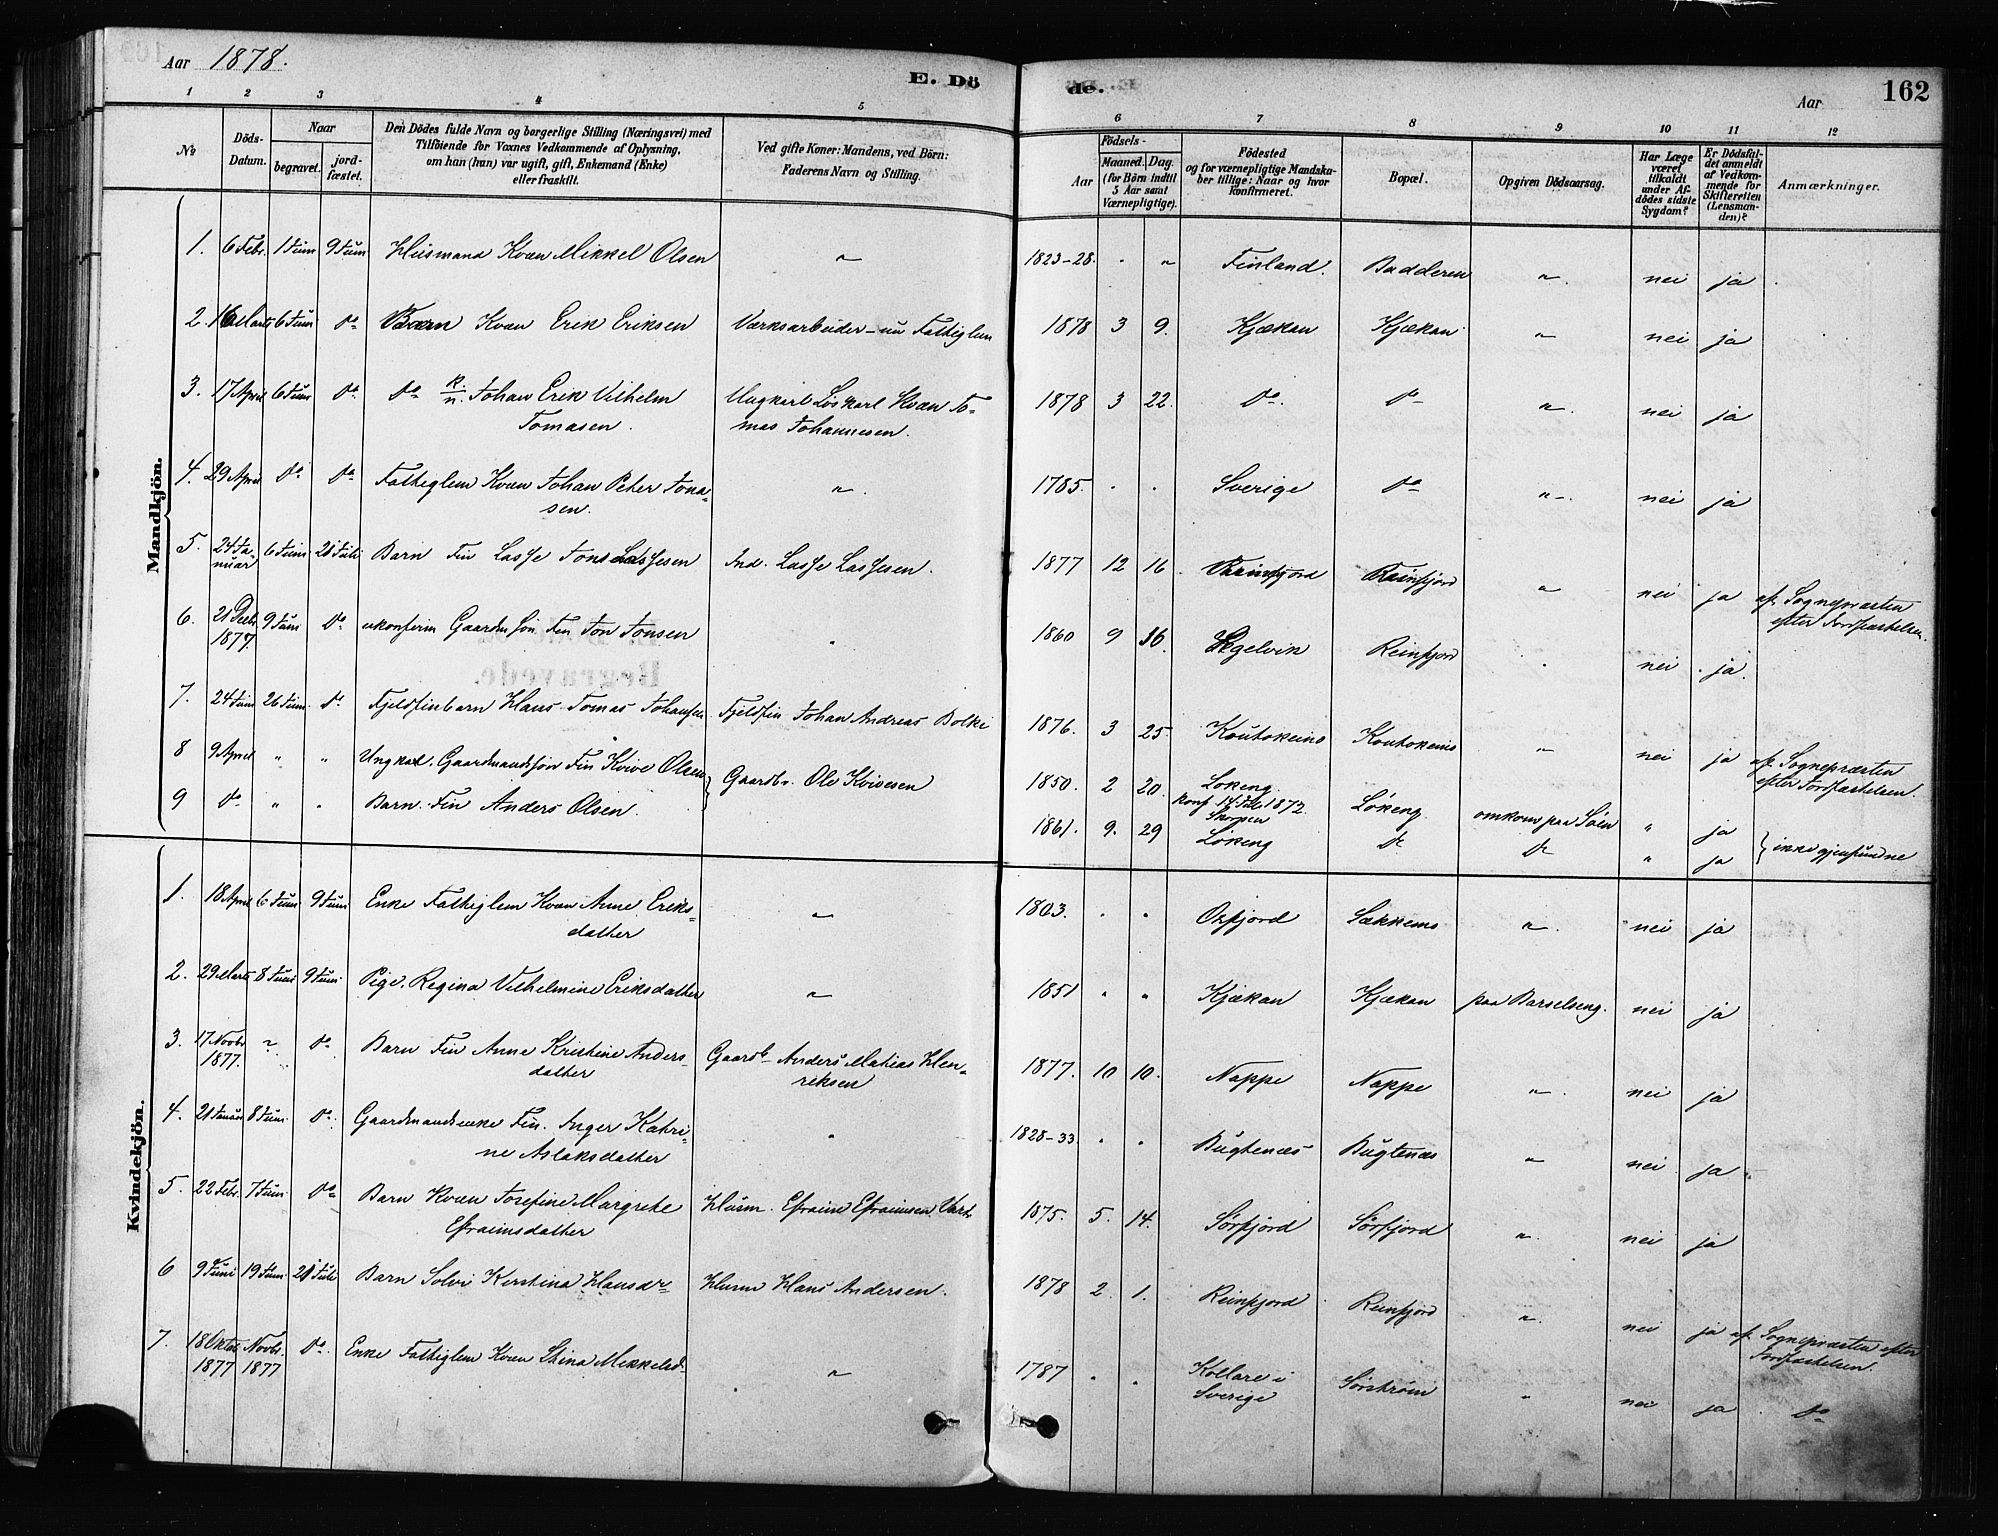 Aar 1878.
E. Dö
de.
Aar
162
1 2 3 4 5
6 7 8 9 10 11 12
No
Döds-Datum.
Naar
begravet.
jord-fæstet.
Den Dödes fulde Navn og borgerlige Stilling (Næringsvei) med
Tilföiende for Voxnes Vedkommende af Oplysning,
om han (hun) var ugift, gift, Enkemand (Enke)
eller fraskilt.
Ved gifte Koner: Mandens, ved Börn:
Faderens Navn og Stilling.
Födsels-
Aar
Maaned. Dag.
(for Börn indtil
5 Aar samt
Værnepligtige).
Födested
og for værnepligtige Mandska-
ber tillige: Naar og hvor
konfirmeret.
Bopæl.
Opgiven Dödsaarsag.
Har Læge
været
tilkaldt
under Af-
dödes sidste
Sygdom?
Er Dödsfal-
det anmeldt
af Vedkom-
mende for
Skifteretten
(Lensman-
den)?
Anmærkninger.
Mandkjön.
1. 6 Febr. 1 Juni 9 Juni Husmand Kvæn Mikkel Olsen " 1823-28. " " Finland. Badderen " nei ja
2. 16 Marts 6 Juni do Barn Kvæn Erik Eriksen Værksarbeider - nu Fattiglem 1878 3 9. Kjækan Kjækan " nei ja
3. 17 April 6 Juni do do Johan Erik Vilhelm Ungkarl Löskarl Kvæn To- 1878 3 22. do. do " nei ja
Tomasen. mas Johannesen.
4. 29 April do do Fattiglem Kvæn Johan Peter Jona- " 1785. " " Sverige do " nei ja
sen.
5. 24 Ja- 6 Juni 21 Juli Barn Fin Lasse Jons Lassesen Ind. Lasse Lassesen. 1877 12 16 Reinfjord Reinfjord " nei ja af Sognepræsten
nuar efter Jordfæstelsen.
6. 21 Decbr. 9 Juni do ukonfirm Gaardm sön Fin Jon Jonsen " 1860 9 16. Reinfjord nei ja.
1877.
7. 24 Juni 26 Juni do Fjeldfinbarn Hans Tomas Johansen Fjeldfin Johan Andreas Bolki 1876. 3 25. Koutokeino Koutokeino " nei ja af Sognepræsten
efter Jordfæstelsen.
8 9 April " " Ungkarl. Gaardmandssön Fin Kvive Olsen Gaardbr. Ole Kvivesen 1850. 2 20. Lökeng. Lökeng omkom paa Söen " ja ikke gjenfundne
konf. 14 Juli 1872
9 do " " Barn. Fin Anders Olsen. 1861. 9. 29 Lökeng do do " ja
Kvindekjön.
1. 18 April 6 Juni 9 Juni Enke Fattiglem Kvæn Anne Eriks- " 1803. " " Oxfjord Sækkemo " nei ja
datter
2. 29 Marts 8 Juni 9 Juni Pige. Regina Vilhelmine Eriksdatter " 1851 " " Kjækan Kjækan paa Barselseng. nei ja
3. 17 Novbr " do Barn Fin Anne Kristine Anders- Gaardb. Anders Matias Hen- 1877. 10 10. Nappe Nappe " nei ja
1877. datter riksen
4. 21 Januar 8 Juni do Gaardmandsenke Fin. Inger Katri- " 1828-33. " " Bugtenæs Bugtenæs " nei ja
ne Aslaksdatter
5. 22 Febr. 7 Juni do Barn Kvæn Josefine Margrete Husm. Efraim Efraimsen 1875. 5. 14. Sörfjord Sörfjord " nei ja
Efraimsdatter
6 9 Juni 19 Juni 21 Juli Barn Solvi Kerstina Hansdr Husm Hans Andersen. 1878 2. 1. Reinfjord Reinfjord " nei ja af Sognepræsten efter
Jordfæstelsen.
7. 18 Oktbr Novbr. do Enke Fattiglem Kvæn Stina Mikkelsd. " 1787 " " Kollare i Sörström " nei ja do
1877 1877 Sverige